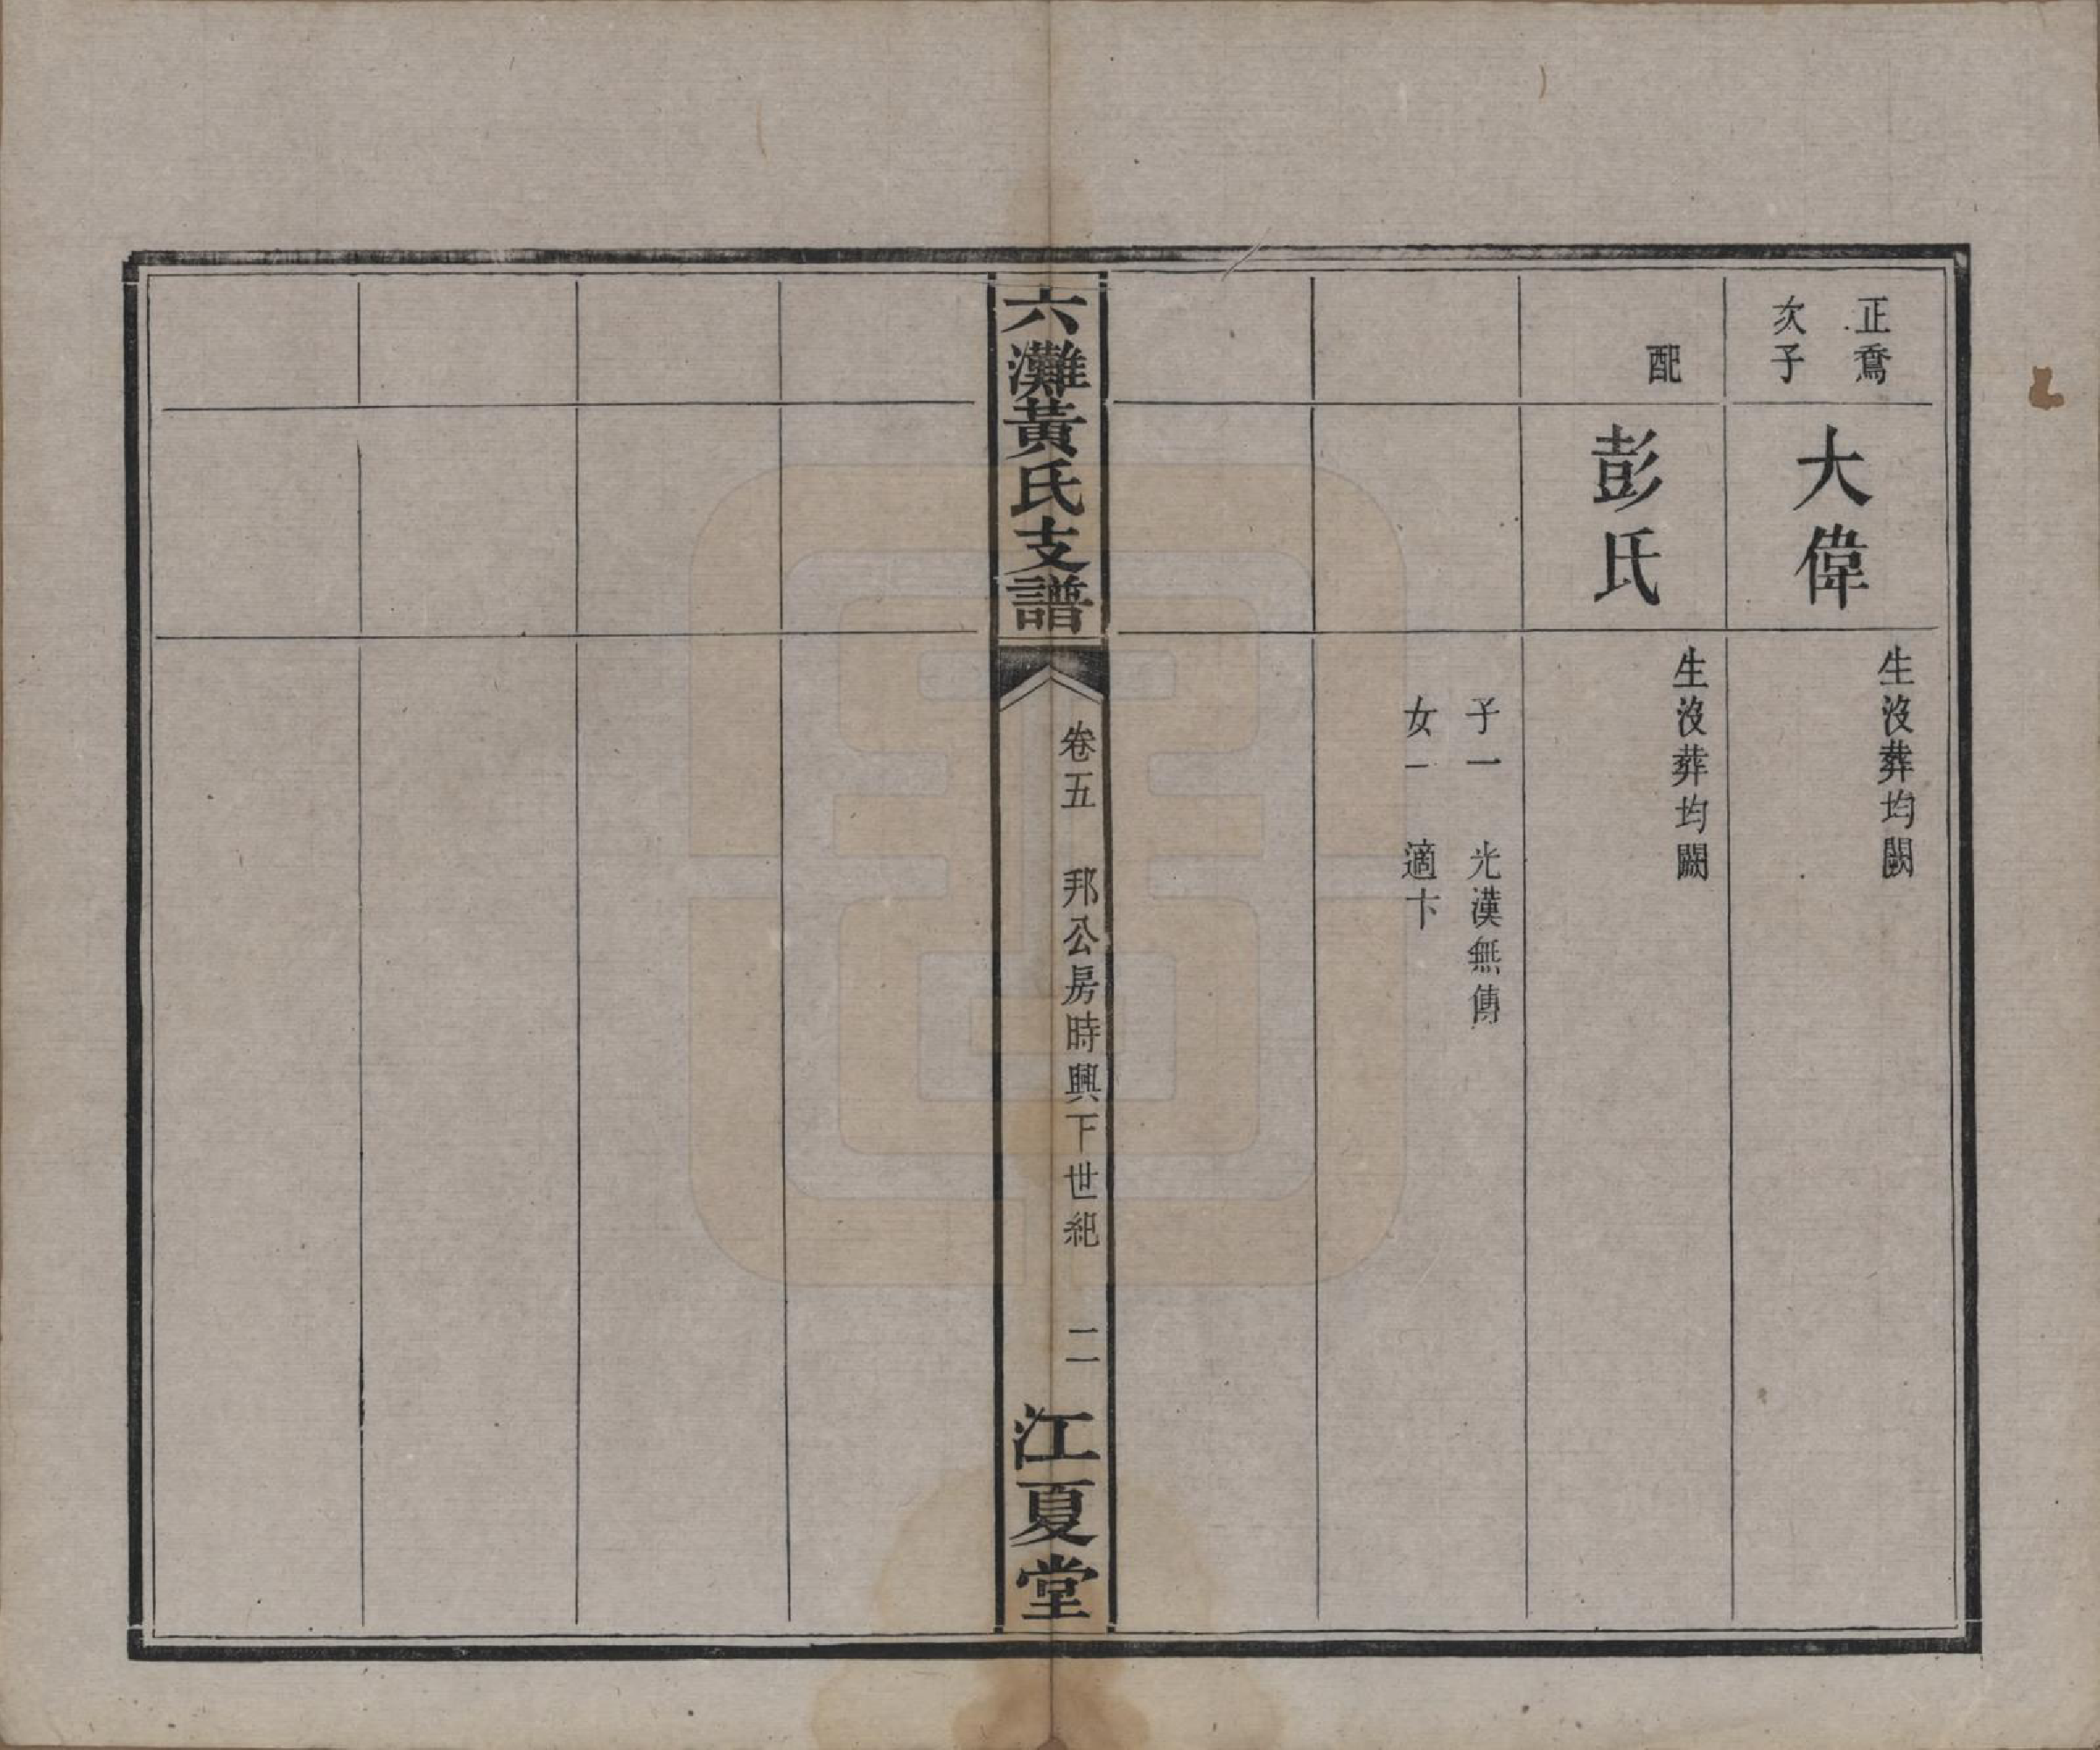 正鶱
次子
大偉
生沒葬均闕
配
彭氏
生沒葬均闕
子一 光漢無傳
女一 適卞
六灘黃氏支譜
卷五 邦公房時興下世紀 二
江夏堂